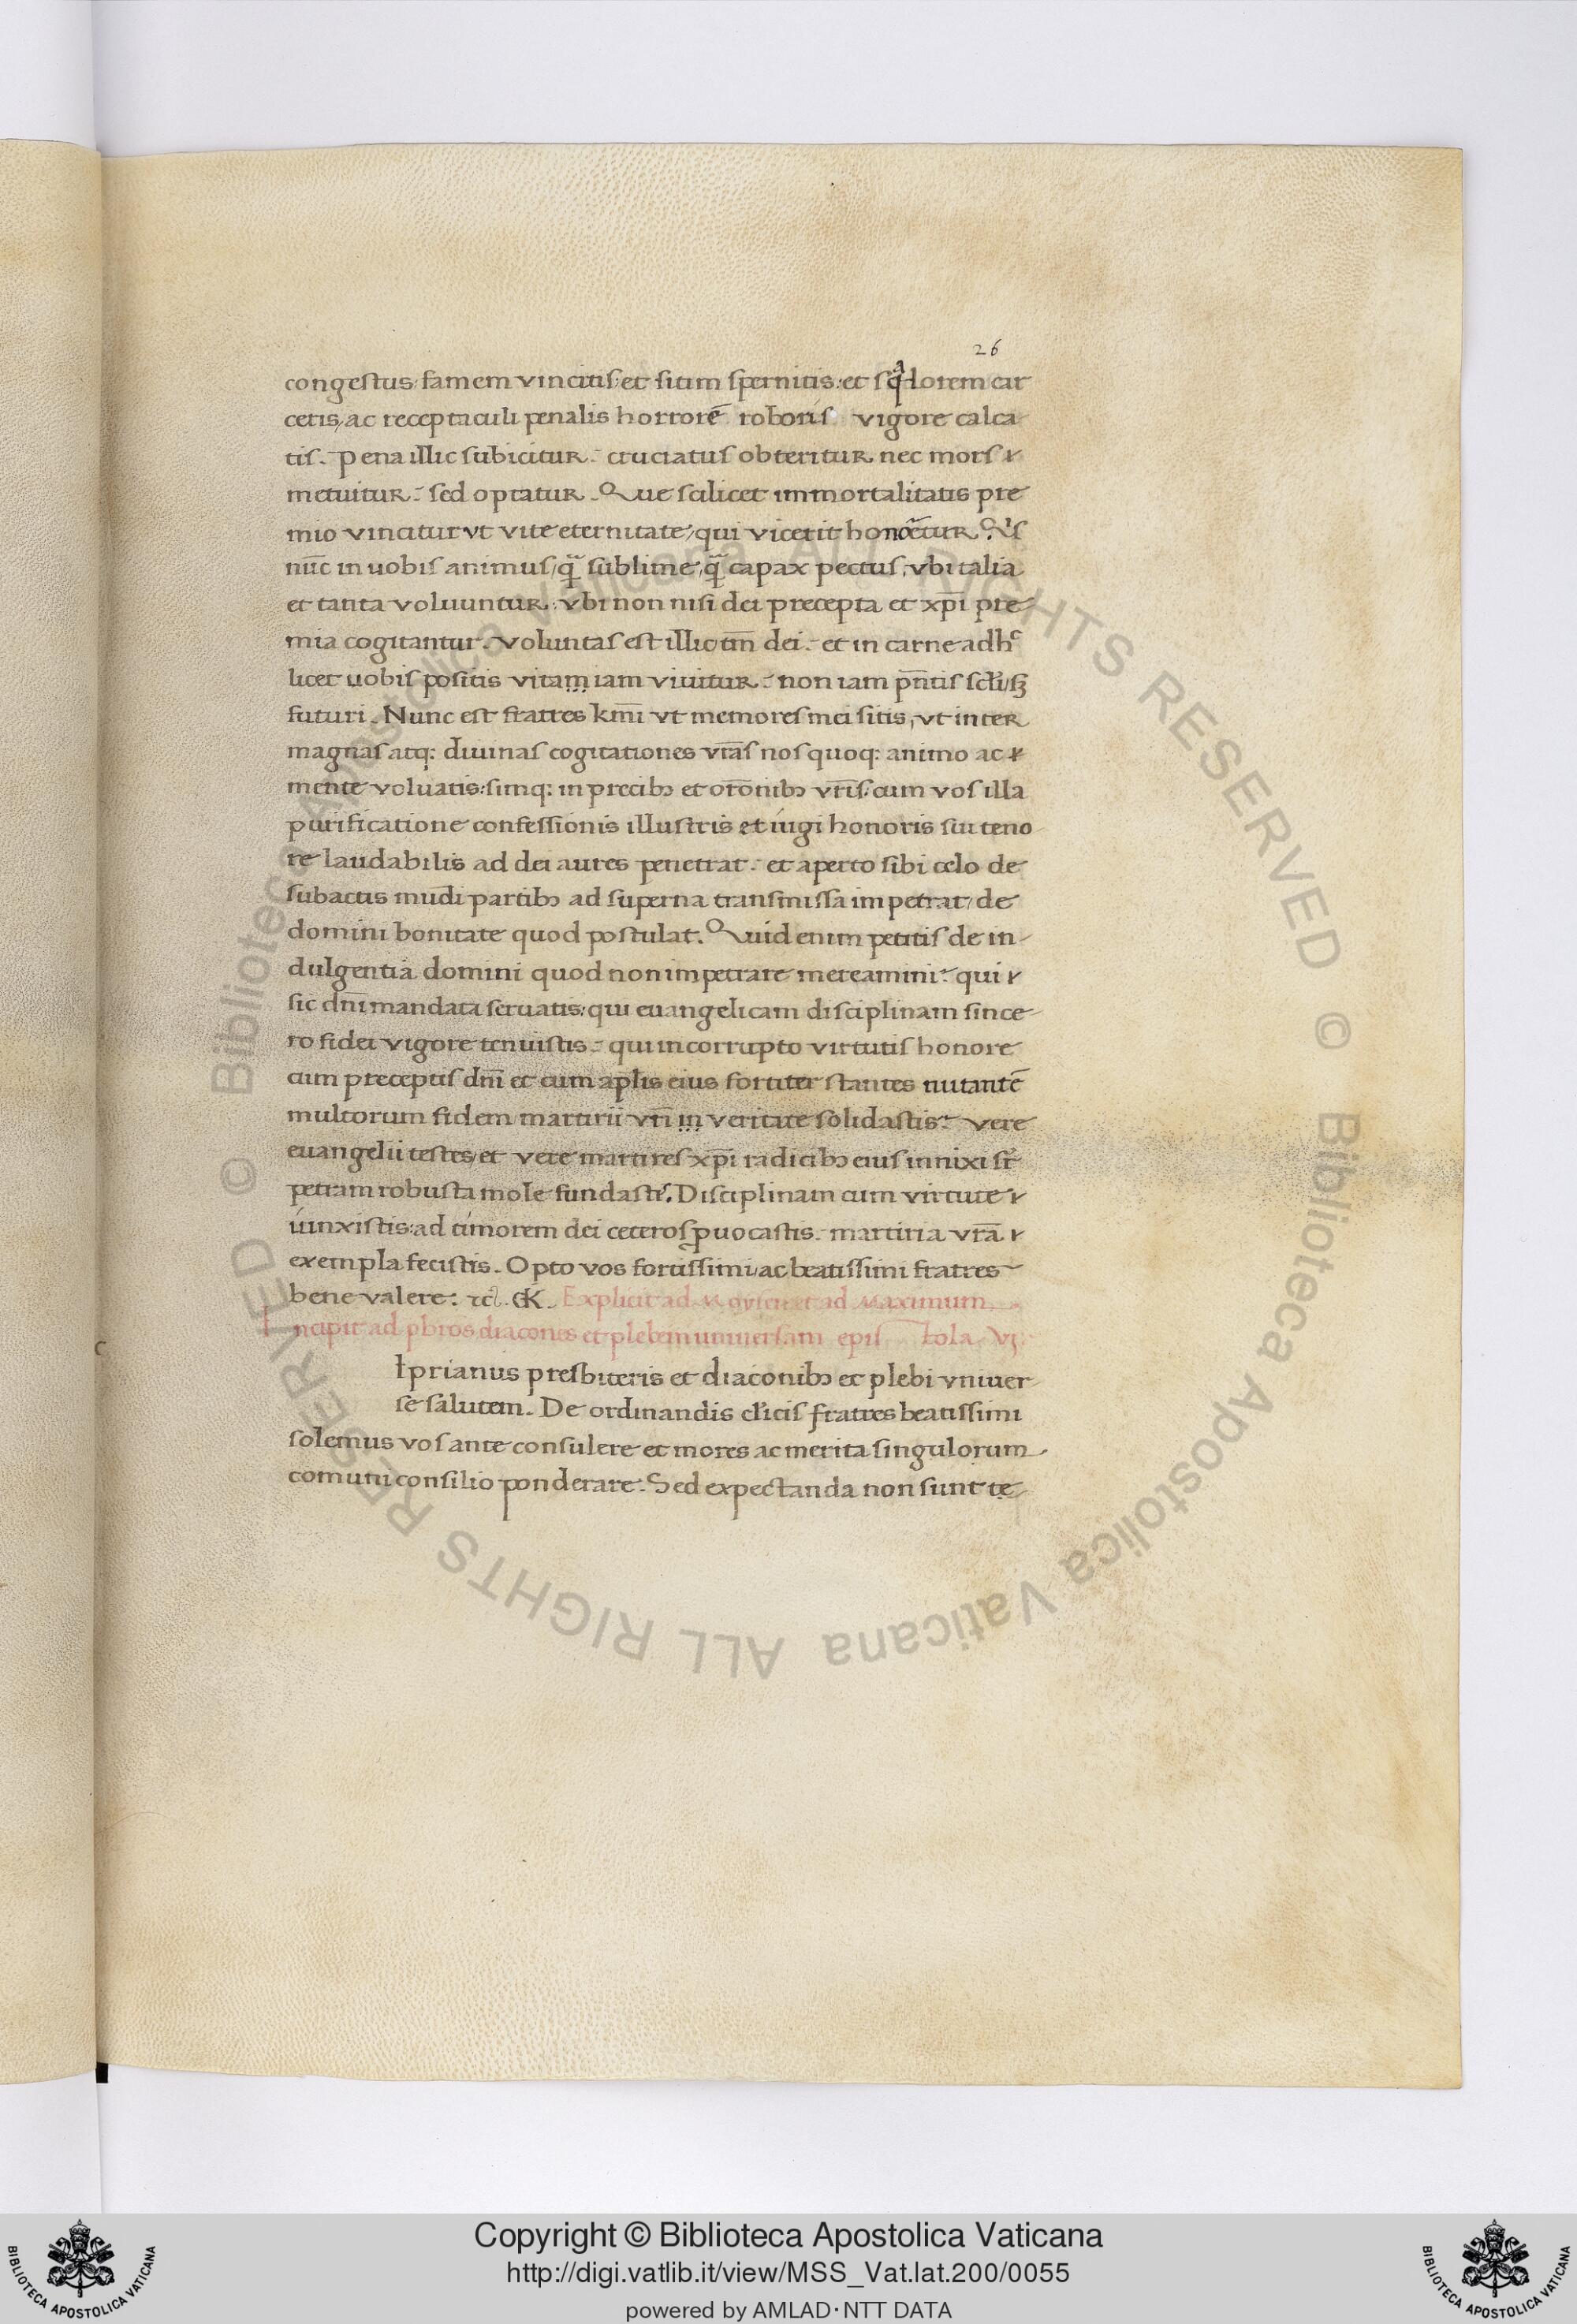 26
congestus famem vincitis: et sitim spernitis: et sq̃lorem car
ceris, ac receptaculi penalis horrorẽ roboris vigore calca
tis. Pena illic subicitur: cruciatus obteritur nec mors
metuitur: sed optatur. Que scilicet immortalitatis pre
mio vincitur vt vite eternitate, qui vicerit honoretur. Qis
nũc in uobis animus, q̃ sublime, q̃ capax pectus, vbi talia
et tanta voluuntur: vbi non nisi dei precepta et xp̃i pre
mia cogitantur. Voluntas est illic tm̃ dei: et in carne adhc
licet uobis positis vitam iam viuitur: non iam pñtis scłi, sꝫ
futuri. Nunc est fratres km̃i vt memores mei sitis, vt inter
magnas atq: diuinas cogitationes vr̃as nos quoq: animo ac
mente voluatis: simq: in precibꝫ et or̃onibꝫ vr̃is: cum vos illa
purificatione confessionis illustris et iugi honoris sui teno
re laudabilis ad dei aures penetrat: et aperto sibi celo de
subactis mundi partibꝫ ad superna transmissa impetrat, de
domini bonitate quod postulat. Quid enim petitis de in
dulgentia domini quod non impetrare mereamini: qui
sic dñi mandata seruatis: qui euangelicam disciplinam since
ro fidei vigore tenuistis: qui incorrupto virtutis honore
cum preceptis dñi et cum ap̃lis eius fortiter stantes nutantẽ
multorum fidem martirii vr̃i in veritate solidastis: vere
euangelii testes, et vere martires xp̃i radicibꝫ eius innixi sr̃
petram robusta mole fundastis. Disciplinam cum virtute
uinxistis: ad timorem dei ceteros ꝓuocastis: martiria vr̃a
exempla fecistis. Opto vos fortissimi, ac beatissimi fratres
bene valere: Explicit ad Moysen et ad Maximum
Incipit ad p̃bros, diacones et plebem uniuersam epistola VI:
Iprianus presbiteris et diaconibꝫ et plebi vniuer
se salutem. De ordinandis cłicis fratres beatissimi
solemus vos ante consulere et mores ac merita singulorum
comuni consilio ponderare: Sed expectanda non sunt te
Copyright © Biblioteca Apostolica Vaticana
http://digi.vatlib.it/view/MSS_Vat.lat.200/0055
powered by AMLAD·NTT DATA
BIBLIOTECA APOSTOLICA VATICANA
BIBLIOTECA APOSTOLICA VATICANA
© Biblioteca Apostolica Vaticana ALL RIGHTS RESERVED © Biblioteca Apostolica Vaticana ALL RIGHTS RESERVED